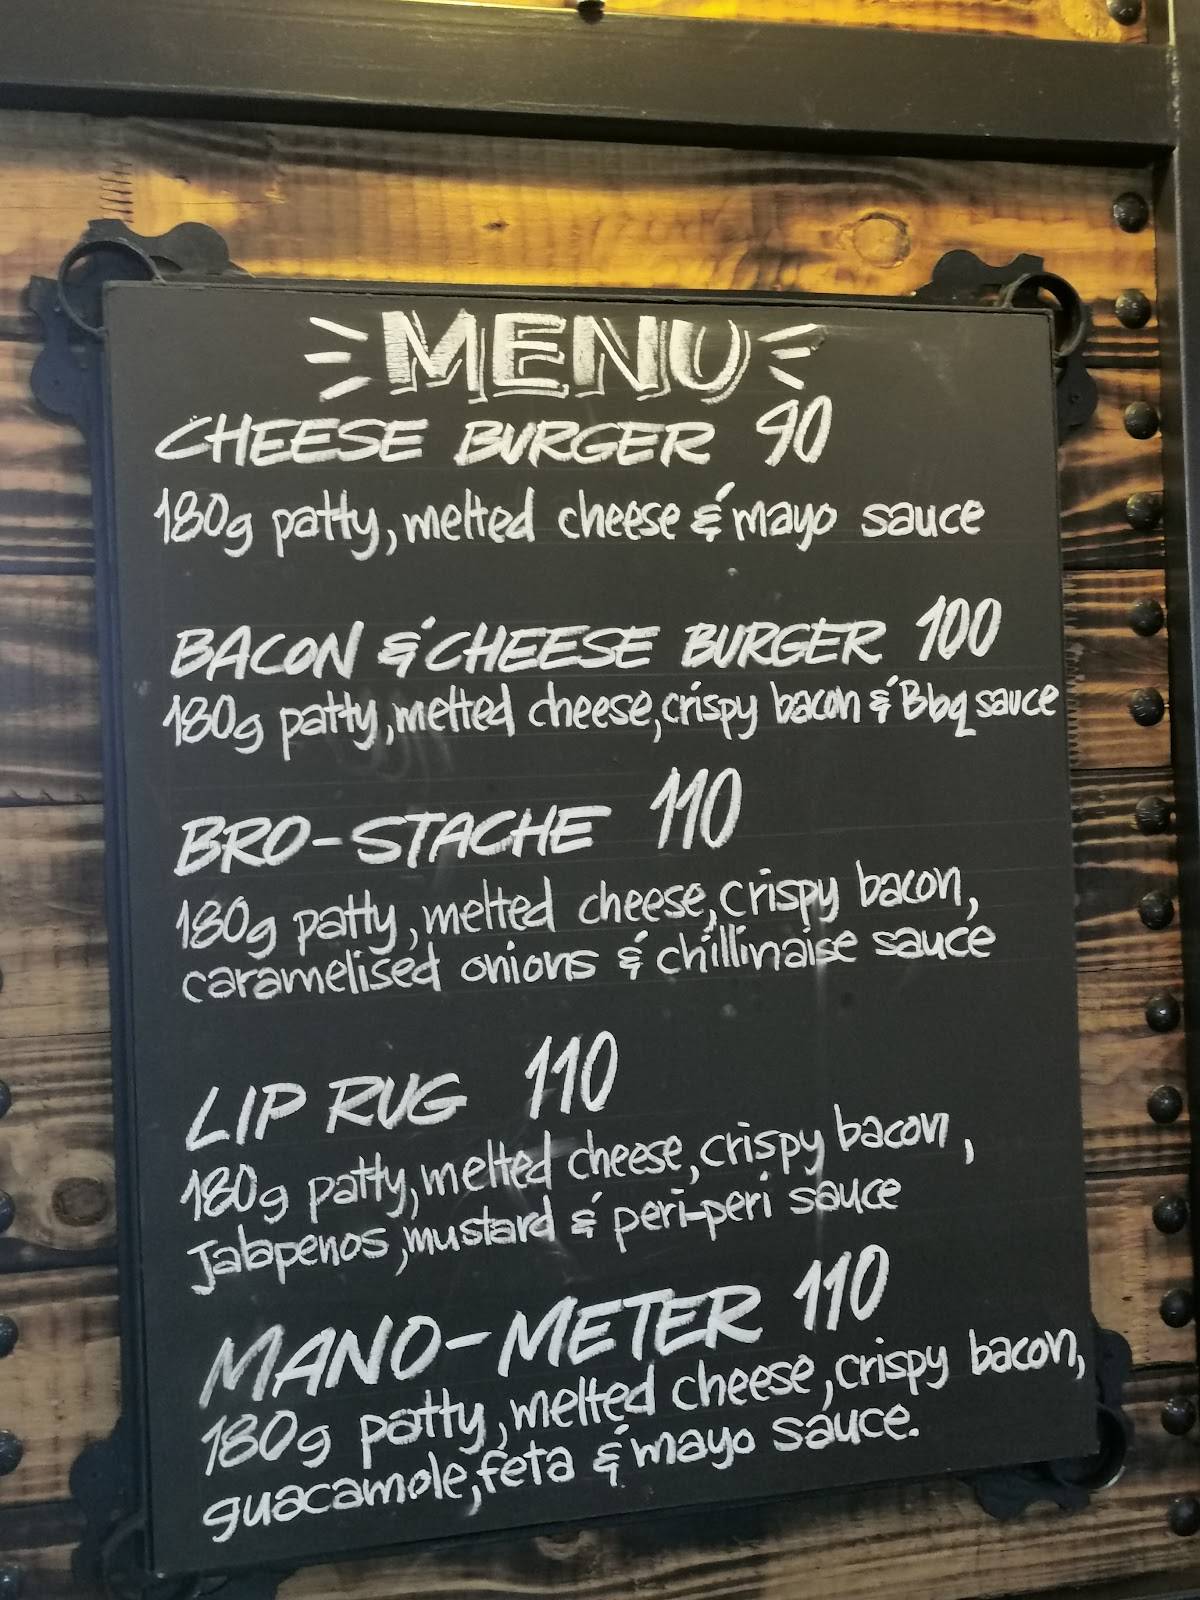 MENU
CHEESE BURGER 90
180g patty, melted cheese & mayo sauce
BACON & CHEESE BURGER 100
180g patty, melted cheese, crispy bacon & Bbq sauce
BRO-STACHE 110
180g patty, melted cheese, crispy bacon,
caramelised onions & chillinaise sauce
LIP RUG 110
180g patty, melted cheese, crispy bacon,
Jalapenos, mustard & peri-peri sauce
MANO-METER 110
180g patty, melted cheese, crispy bacon,
guacamole, feta & mayo sauce.